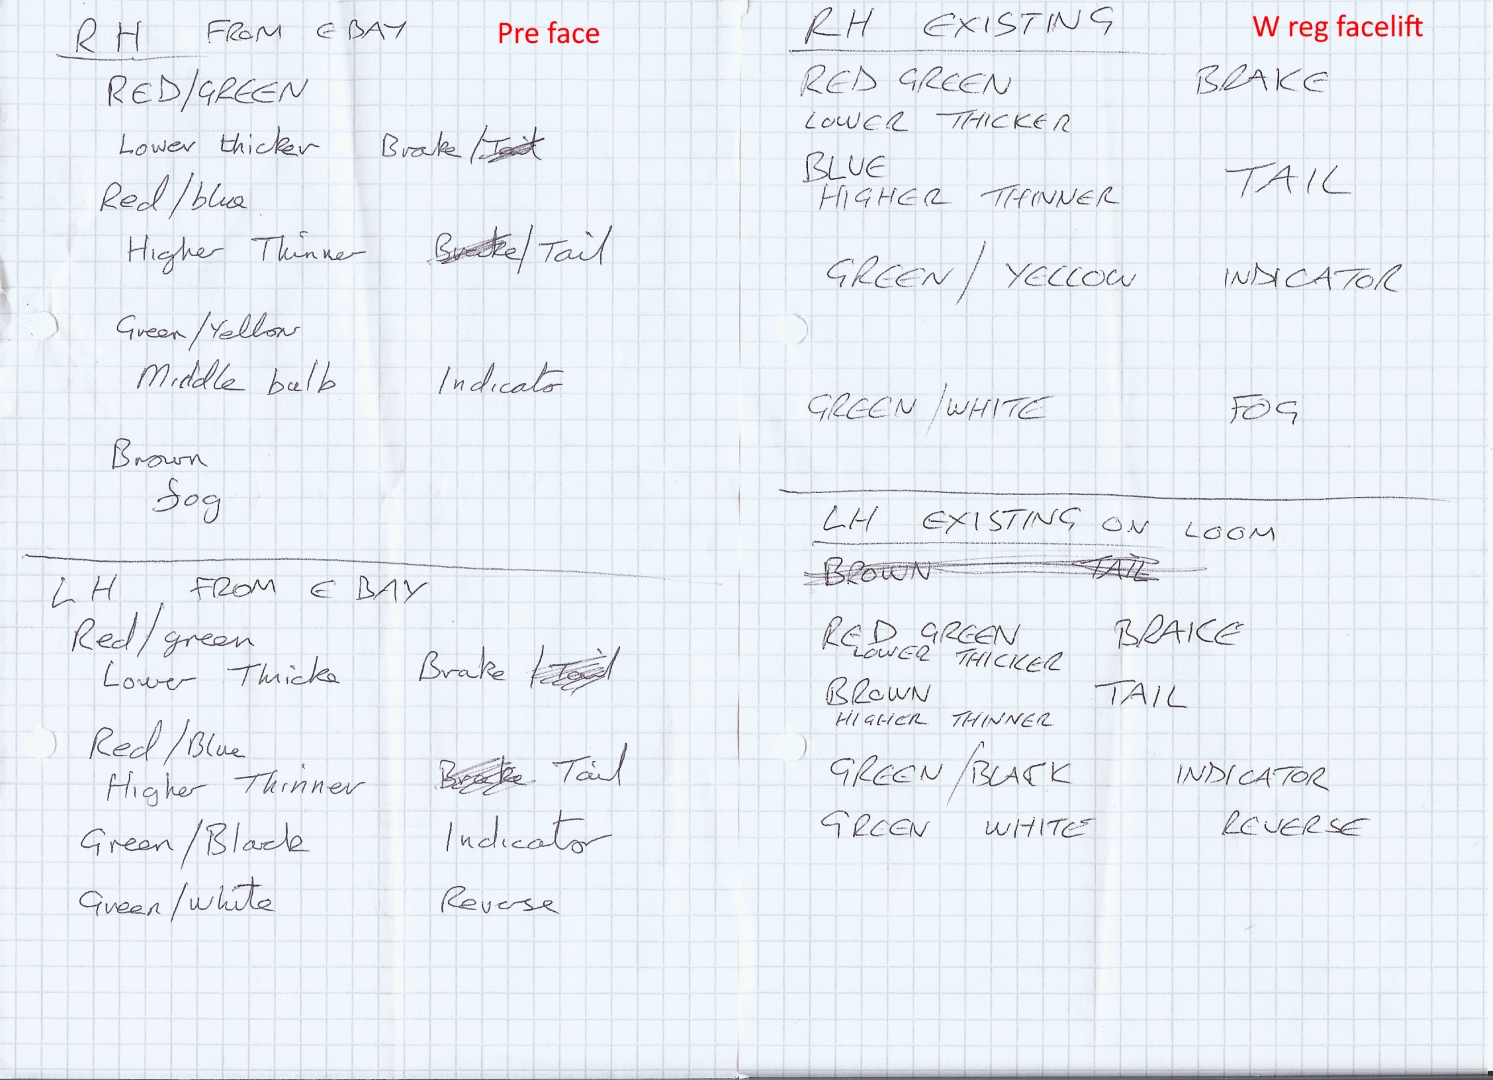 RH FROM EBAY Pre face
RED/GREEN
Lower thicker Brake/
Red/blue
Higher Thinner Brake/Tail
Green/Yellow
Middle bulb Indicator
Brown
fog
LH FROM EBAY
Red/green
Lower Thicke Brake /
Red/Blue
Higher Thinner Brake Tail
Green/Black Indicator
Green/white Reverse
RH EXISTING W reg facelift
RED GREEN BRAKE
LOWER THICKER
BLUE
HIGHER THINNER TAIL
GREEN/YELLOW INDICATOR
GREEN/WHITE FOG
LH EXISTING ON LOOM
BROWN TAIL
RED GREEN BRAKE
LOWER THICKER
BROWN TAIL
HIGHER THINNER
GREEN/BLACK INDICATOR
GREEN WHITE REVERSE